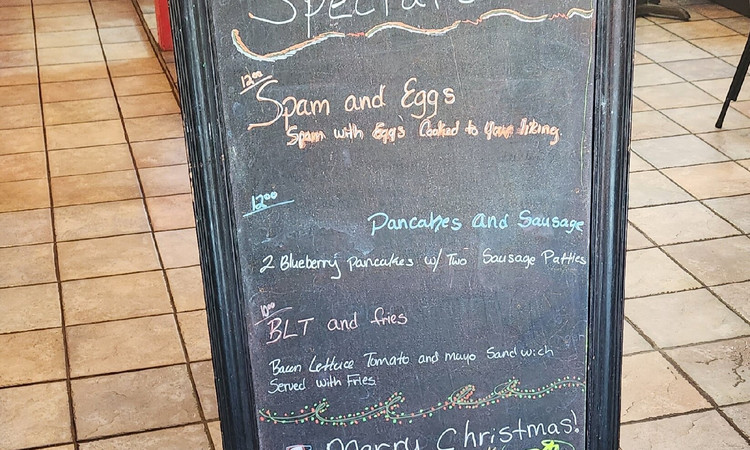 Specials
12.00
Spam and Eggs
Spam with Eggs Cooked to Your liking.
12.00
Pancakes and Sausage
2 Blueberry Pancakes w/ Two Sausage Patties
10.00
BLT and fries
Bacon Lettuce Tomato and mayo Sandwich
Served with Fries
Merry Christmas!